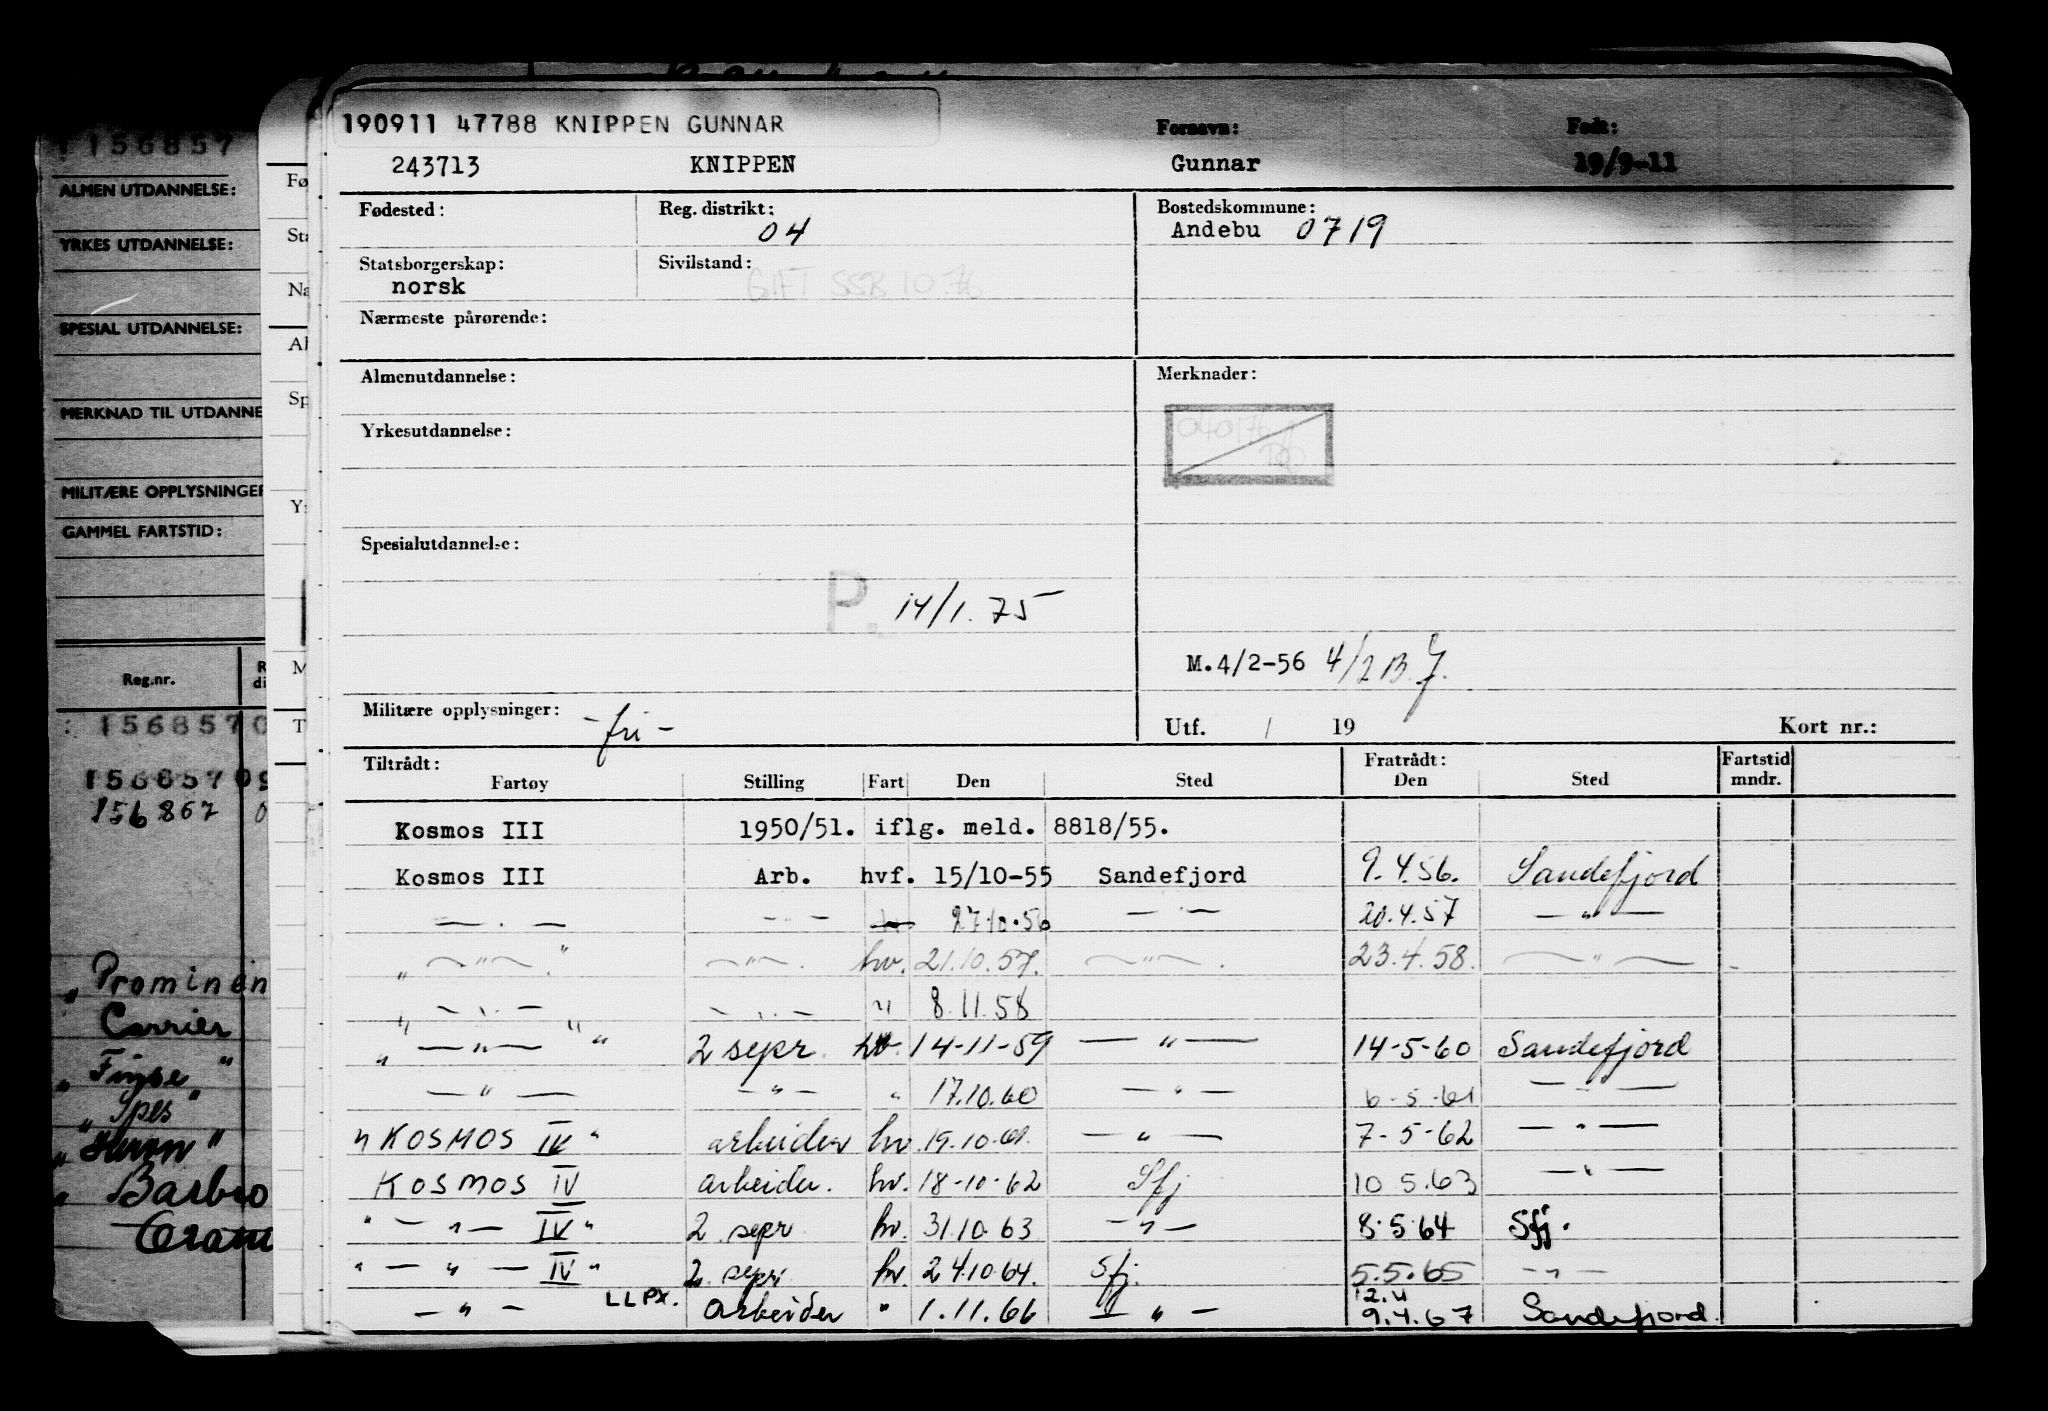 190911 47788 KNIPPEN GUNNAR
Fornavn: Født:
243713 KNIPPEN Gunnar 19/9-11
Fødested: Reg. distrikt: 04 Bostedskommune: Andebu 0719
Statsborgerskap: norsk Sivilstand: GIFT SSB 10.76
Nærmeste pårørende:
Almenutdannelse: Merknader:
Yrkesutdannelse:
Spesialutdannelse:
P. 14/1.75
M.4/2-56 4/2 B.
Militære opplysninger: -fri- Utf. / 19 Kort nr.:
Tiltrådt: Fratrådt: Fartstid
Fartøy Stilling Fart Den Sted Den Sted mndr.
Kosmos III 1950/51. iflg. meld. 8818/55.
Kosmos III Arb. hvf. 15/10-55 Sandefjord 9.4.56. Sandefjord
— . — — . — 27.10.56 — . — 20.4.57 — " —
" — " — " — " — hv. 21.10.57. — " — 23.4.58. — " —
" — . — " — . — " 8.11.58
" — " — " 2 sepr. hv. 14-11-59 — " — 14-5-60 Sandefjord
— " — — " — " 17.10.60 — " — 6-5-61 — " —
" KOSMOS IV " arbeider hv. 19.10.61. — " — 7-5-62 — " —
KOSMOS IV arbeider. hv. 18-10-62 Sfj 10.5.63 — " —
" — " — IV " 2 sepr hv. 31.10.63 — " — 8.5.64 Sfj.
" — " — IV " 2 sepr hv. 24.10.64. Sfj. 5.5.65 — " —
— " — LLPX. arbeider " 1.11.66 — " — 9.4.67 Sandefjord.
156857
ALMEN UTDANNELSE:
YRKES UTDANNELSE:
SPESIAL UTDANNELSE:
MERKNAD TIL UTDANNE
MILITÆRE OPPLYSNINGER
GAMMEL FARTSTID:
Reg.nr. R di
: 1568570
15685709
156867 0
" Prominen
Carrier
" Finse "
" Spes "
" Heron "
" Barbro
Fø
Sta
Na
Al
Sp
Yr
M
T